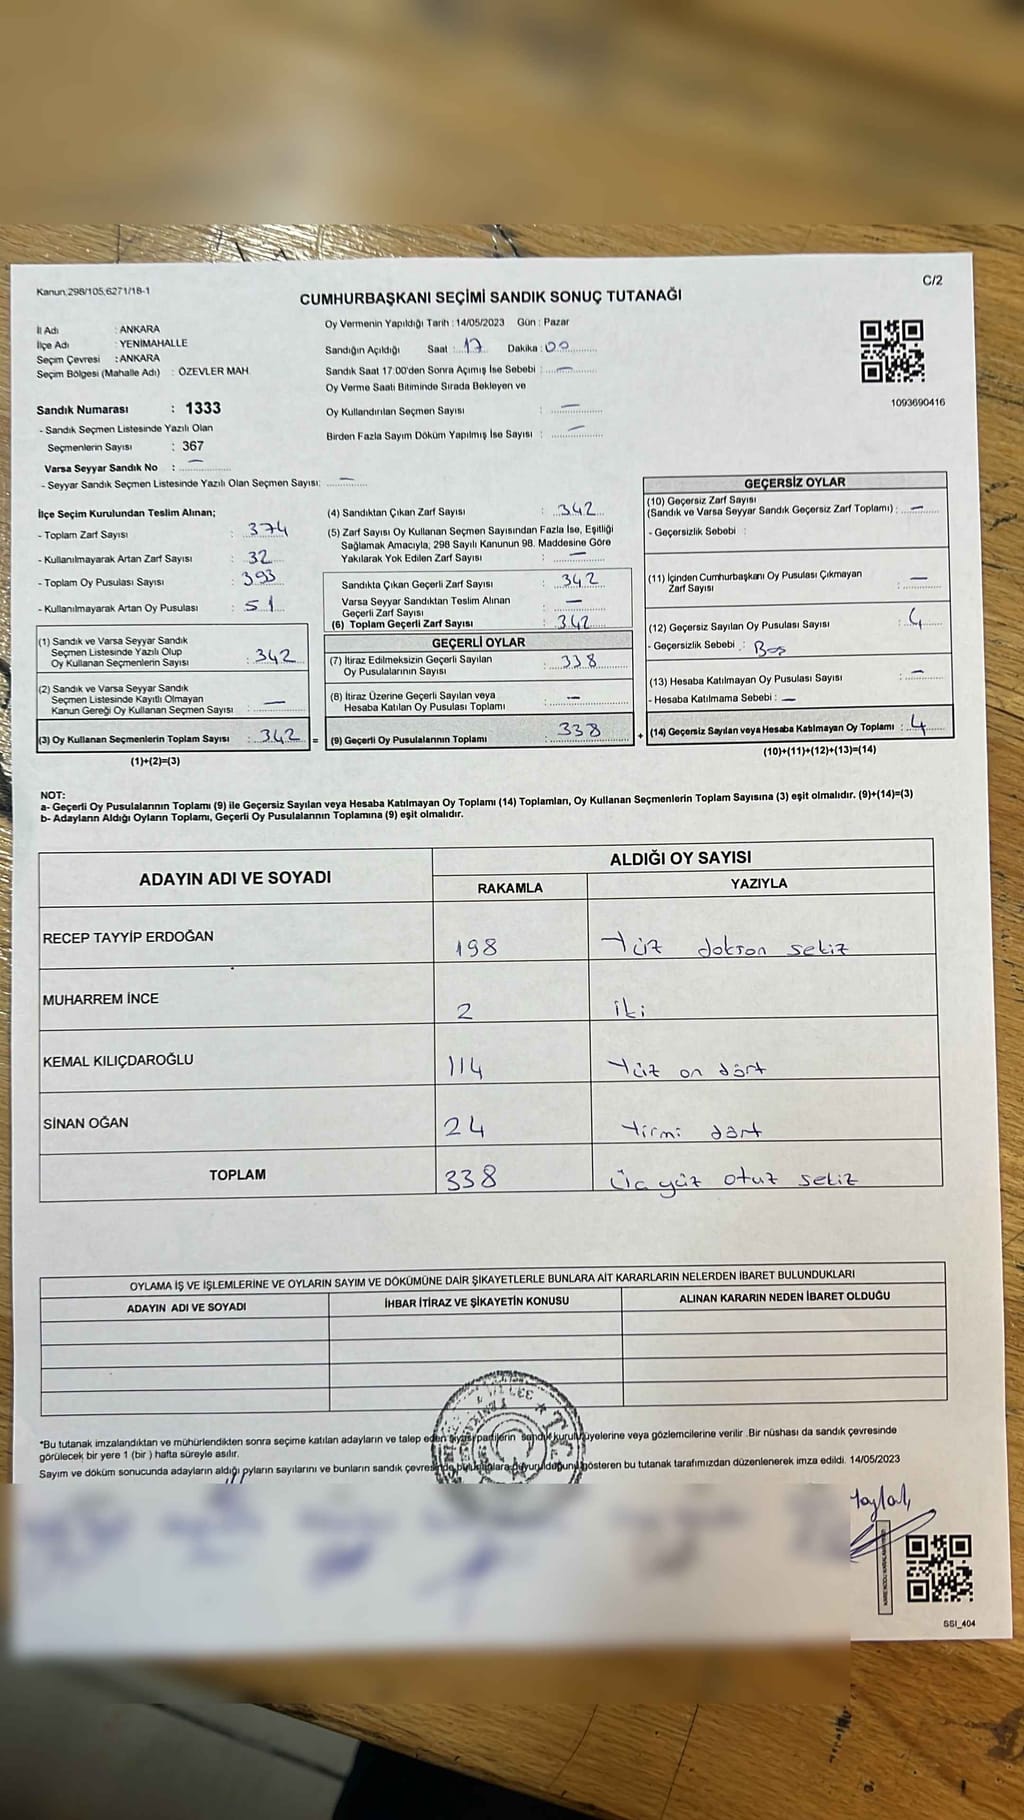 Kanun.298/105,6271/18-1
C/2
CUMHURBAŞKANI SEÇİMİ SANDIK SONUÇ TUTANAĞI
İl Adı : ANKARA
İlçe Adı : YENİMAHALLE
Seçim Çevresi : ANKARA
Seçim Bölgesi (Mahalle Adı) : ÖZEVLER MAH.
Sandık Numarası : 1333
- Sandık Seçmen Listesinde Yazılı Olan
Seçmenlerin Sayısı : 367
Varsa Seyyar Sandık No : —
- Seyyar Sandık Seçmen Listesinde Yazılı Olan Seçmen Sayısı: —
Oy Vermenin Yapıldığı Tarih : 14/05/2023 Gün : Pazar
Sandığın Açıldığı Saat : 17 Dakika : 00
Sandık Saat 17:00'den Sonra Açımış İse Sebebi : —
Oy Verme Saati Bitiminde Sırada Bekleyen ve
Oy Kullandırılan Seçmen Sayısı : —
Birden Fazla Sayım Döküm Yapılmış İse Sayısı : —
1093690416
İlçe Seçim Kurulundan Teslim Alınan;
- Toplam Zarf Sayısı : 374
- Kullanılmayarak Artan Zarf Sayısı : 32
- Toplam Oy Pusulası Sayısı : 393
- Kullanılmayarak Artan Oy Pusulası : 51
(1) Sandık ve Varsa Seyyar Sandık
Seçmen Listesinde Yazılı Olup
Oy Kullanan Seçmenlerin Sayısı : 342
(2) Sandık ve Varsa Seyyar Sandık
Seçmen Listesinde Kayıtlı Olmayan
Kanun Gereği Oy Kullanan Seçmen Sayısı : —
(3) Oy Kullanan Seçmenlerin Toplam Sayısı : 342 =
(1)+(2)=(3)
(4) Sandıktan Çıkan Zarf Sayısı : 342
(5) Zarf Sayısı Oy Kullanan Seçmen Sayısından Fazla İse, Eşitliği
Sağlamak Amacıyla; 298 Sayılı Kanunun 98. Maddesine Göre
Yakılarak Yok Edilen Zarf Sayısı : —
Sandıkta Çıkan Geçerli Zarf Sayısı : 342
Varsa Seyyar Sandıktan Teslim Alınan
Geçerli Zarf Sayısı : —
(6) Toplam Geçerli Zarf Sayısı : 342
GEÇERLİ OYLAR
(7) İtiraz Edilmeksizin Geçerli Sayılan
Oy Pusulalarının Sayısı : 338
(8) İtiraz Üzerine Geçerli Sayılan veya
Hesaba Katılan Oy Pusulası Toplamı : —
(9) Geçerli Oy Pusulalarının Toplamı : 338 +
GEÇERSİZ OYLAR
(10) Geçersiz Zarf Sayısı
(Sandık ve Varsa Seyyar Sandık Geçersiz Zarf Toplamı) : —
- Geçersizlik Sebebi :
(11) İçinden Cumhurbaşkanı Oy Pusulası Çıkmayan
Zarf Sayısı : —
(12) Geçersiz Sayılan Oy Pusulası Sayısı : 4
- Geçersizlik Sebebi : Boş
(13) Hesaba Katılmayan Oy Pusulası Sayısı : —
- Hesaba Katılmama Sebebi : —
(14) Geçersiz Sayılan veya Hesaba Katılmayan Oy Toplamı : 4
(10)+(11)+(12)+(13)=(14)
NOT:
a- Geçerli Oy Pusulalarının Toplamı (9) ile Geçersiz Sayılan veya Hesaba Katılmayan Oy Toplamı (14) Toplamları, Oy Kullanan Seçmenlerin Toplam Sayısına (3) eşit olmalıdır. (9)+(14)=(3)
b- Adayların Aldığı Oyların Toplamı, Geçerli Oy Pusulalarının Toplamına (9) eşit olmalıdır.
ADAYIN ADI VE SOYADI
ALDIĞI OY SAYISI
RAKAMLA YAZIYLA
RECEP TAYYİP ERDOĞAN 198 Yüz doksan sekiz
MUHARREM İNCE 2 iki
KEMAL KILIÇDAROĞLU 114 Yüz on dört
SİNAN OĞAN 24 Yirmi dört
TOPLAM 338 Üç yüz otuz sekiz
OYLAMA İŞ VE İŞLEMLERİNE VE OYLARIN SAYIM VE DÖKÜMÜNE DAİR ŞİKAYETLERLE BUNLARA AİT KARARLARIN NELERDEN İBARET BULUNDUKLARI
ADAYIN ADI VE SOYADI İHBAR İTİRAZ VE ŞİKAYETİN KONUSU ALINAN KARARIN NEDEN İBARET OLDUĞU
*Bu tutanak imzalandıktan ve mühürlendikten sonra seçime katılan adayların ve talep eden siyasi partilerin sandık kurulu üyelerine veya gözlemcilerine verilir .Bir nüshası da sandık çevresinde
görülecek bir yere 1 (bir ) hafta süreyle asılır.
Sayım ve döküm sonucunda adayların aldığı oyların sayılarını ve bunların sandık çevresinde bulunanlara duyurulduğunu gösteren bu tutanak tarafımızdan düzenlenerek imza edildi. 14/05/2023
SSI_404